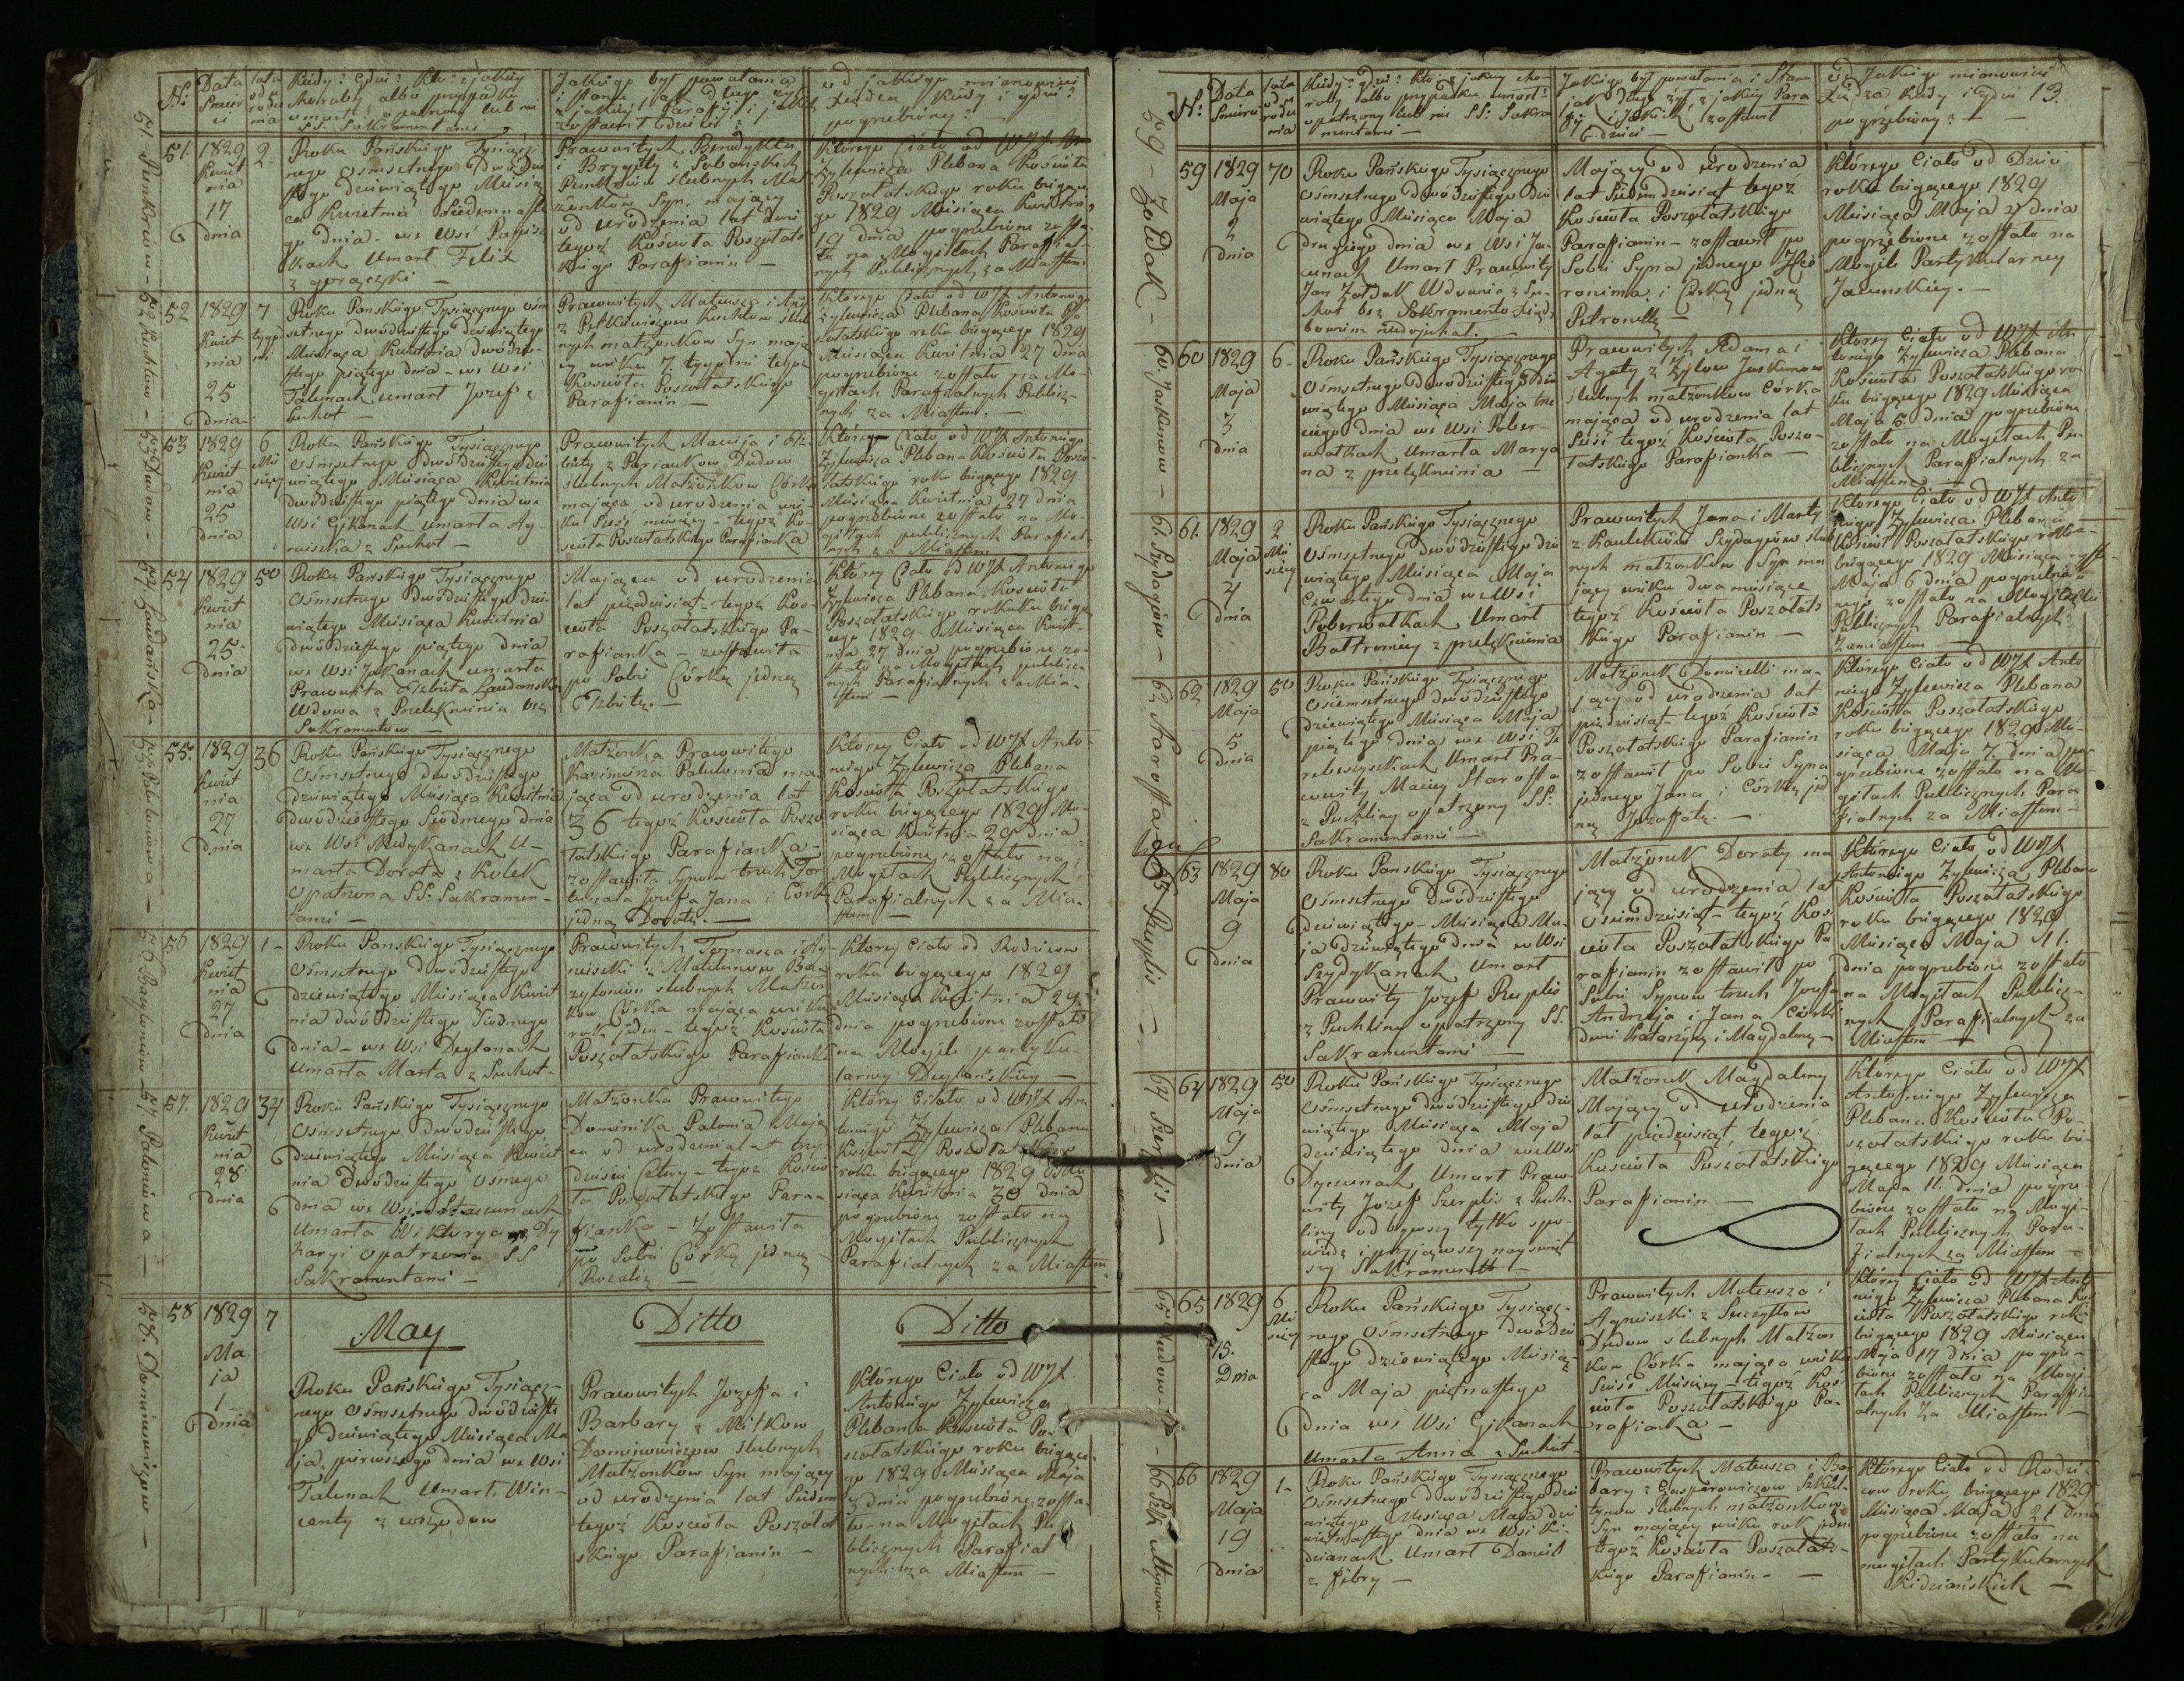 Nº
Data
Śmier
ci
lata
od u
rodze
nia
Kiedy? Gdzie? Kto? z jakiey
choroby albo przypadku
umarł? opatrzony lub nie
SS. Sakramentami
Jakiego był powołania
i stanu jak długo żył
z jakiey Parafii i jakich
zostawił dzieci
od jakiego mianowicie
Xiędza kiedy i gdzie
pogrzebiony?
51. Punkrów
51.
1829
Kwiet
nia
17
dnia
2
Roku Pańskiego Tysiącz
nego ośmsetnego dwódzie
stego dziewiątego Miesią
ca Kwietnia Siedemnaste
go dnia we Wsi
umarł Felix
z gorączki
Prawowitych Benedykta
i Brygitty z Sobańskich
Punkrów ślubnych Mał
żonków Syn mający
od urodzenia lat dwie
tegoż Kościoła Poszołats
kiego Parafianin
Którego Ciało od WJX An
Zylewicza Plebana Kościoła
Poszołatskiego roku bieżące
go 1829 Miesiąca Kwietnia
19 dnia pogrzebione zosta
ło na Mogiłach Parafial
nych Publicznych za Miastem
52
1829
Kwiet
nia
25
dnia
7
tygod
ni
Roku Pańskiego Tysiącznego ośm
setnego dwódziestego dziewiątego
Miesiąca Kwietnia dwódzie
stego piątego dnia we Wsi
Talunach umarł Jozef z
Suchot
Prawowitych Mateusza i
ślub
nych małżonków Syn mają
cy wieku 7 tygodni tegoż
Kościoła Poszołatskiego
Parafianin
Którego Ciało od WJX Antoniego
Zylewicza Plebana Kościoła Po
szołatskiego roku bieżącego 1829
Miesiąca Kwietnia 27 dnia
pogrzebione zostało na Mo
giłach Parafialnych Publicz
nych za Miastem
53
1829
Kwiet
nia
25
dnia
6
Mie
sięcy
Roku Pańskiego Tysiącznego
ośmsetnego dwódziestego dzie
wiątego Miesiąca Kwietnia
dwódziestego piątego dnia we
Wsi Gikanach umarła Ag
nieszka z Suchot
Prawowitych Macieja i Elż
biety z Dudow
ślubnych Małżonków Córka
mająca od urodzenia wie
ku sześć miesięcy tegoż Ko
ścioła Poszołatskiego Parafianka
Którey Ciało od WJX Antoniego
Zylewicza Plebana Kościoła Poszo
łatskiego roku bieżącego 1829
Miesiąca Kwietnia 27 dnia
pogrzebione zostało na Mo
giłach publicznych Parafial
nych za Miastem
54
1829
Kwiet
nia
25
dnia
50
Roku Pańskiego Tysiącznego
Ośmsetnego dwódziestego dzie
wiątego Miesiąca Kwietnia
dwódziestego piątego dnia
we Wsi Jokanach umarła
Prawowita Elżbieta Laudańska
Wdowa z Przelęknienia bez
Sakramentow
Mająca od urodzenia
lat pięćdziesiąt tegoż Koś
cioła Poszołatskiego Pa
rafianka zostawiła
po Sobie Córkę jedną
Elżbietę
Którey Ciało od WJX Antoniego
Zylewicza Plebana Kościoła
Poszołatskiego roku bieżą
cego 1829 Miesiąca Kwiet
nia 27 dnia pogrzebione zo
stało na Mogiłach publicz
nych Parafialnych za Mia
stem
55.
1829
Kwiet
nia
27
dnia
36
Roku Pańskiego Tysiącznego
ośmsetnego dwódziestego
dziewiątego Miesiąca Kwietnia
dwódziestego Siódmego dnia
we Wsi Medykanach u
marła Dorota z Kolek
opatrzona SS. Sakramen
tami
Małżonka Prawowitego
Kazimierza Palulonia ma
jąca od urodzenia lat
36 tegoż Kościoła Poszo
łatskiego Parafianka
zostawiła Synow trzech For
tunata Jozefa Jana i Córkę
jedną Dorotę
Którey Ciało od WJX Anto
niego Zylewicza Plebana
Kościoła Poszołatskiego
roku bieżącego 1829 Mie
siąca Kwietnia 29 dnia
pogrzebione zostało na
Mogiłach Publicznych
Parafialnych za Mia
stem
56
1829
Kwiet
nia
27
dnia
1
Roku Pańskiego Tysiącznego
ośmsetnego dwódziestego
dziewiątego Miesiąca Kwiet
nia dwódziestego Siódmego
dnia we Wsi Deglanach
umarła Marta z Suchot
Prawowitych Tomasza i Ag
nieszki z
ślubnych Małżon
kow Córka mająca wieku
rok jeden tegoż Kościoła
Poszołatskiego Parafianka
Którey Ciało od Rodzicow
roku bieżącego 1829
Miesiąca Kwietnia 29
dnia pogrzebione zostało
na Mogile partyku
larney Deglańskiey
57.
1829
Kwiet
nia
28
dnia
34
Roku Pańskiego Tysiącznego
ośmsetnego dwódziestego
dziewiątego Miesiąca Kwiet
nia dwódziestego osmego
dnia we Wsi
umarła Wiktorya z Dy
haryi opatrzona SS
Sakramentami
Małżonka Prawowitego
Dominika Palonia Mają
ca od urodzenia lat trzy
dzieści cztery tegoż Kościo
ła Poszołatskiego Para
fianka zostawiła
po Sobie Córkę jedną
Rozalię
Którey Ciało od WJX An
toniego Zylewicza Plebana
Kościoła Poszołatskiego
roku bieżącego 1829 Mie
siąca Kwietnia 30 dnia
pogrzebione zostało na
Mogiłach Publicznych
Parafialnych za Miastem
58
1829
Ma
ja
1
dnia
7
May
Ditto
Ditto
Roku Pańskiego Tysiącz
nego ośmsetnego dwódzieste
go dziewiątego Miesiąca Ma
ja pierwszego dnia we Wsi
Talunach umarł Win
centy z wrzodow
Prawowitych Jozefa i
Barbary z Mitkow
Dominowiczow ślubnych
Małżonków Syn mający
od urodzenia lat Siedem
tegoż Kościoła Poszołat
skiego Parafianin
Którego Ciało od WJX
Antoniego Zylewicza
Plebana Kościoła Po
szołatskiego roku bieżące
go 1829 Miesiąca Maja
3 dnia pogrzebione zosta
ło na Mogiłach Pu
blicznych Parafial
nych za Miastem
58. Dominowiczow
Nº
Data
Śmierci
lata
od u
rodze
nia
Kiedy? gdzie? kto? z jakiey cho
roby albo przypadku umarł?
opatrzony lub nie SS: Sakra
mentami
Jakiego był powołania i Stanu
jak długo żył, z jakiey Para
fii i jakich zostawił
dzieci
od Jakiego mianowicie
Xiędza kiedy i gdzie
pogrzebiony?
13.
59 Zołdak
59
1829
Maja
2
dnia
70
Roku Pańskiego Tysiącznego
Ośmsetnego dwódziestego dzie
wiątego Miesiąca Maja
drugiego dnia we Wsi Ja
cunach Umarł Prawowity
Jan Zołdak Wdowiec z Su
chot bez Sakramentow Xiądz
bowiem niedojechał
Mający od urodzenia
lat Siedemdziesiąt tegoż
Kościoła Poszołatskiego
Parafianin zostawił po
Sobie Syna jednego Hie
ronima i Córkę jedną
Petronellę
Którego Ciało od Dzieci
roku bieżącego 1829
Miesiąca Maja 4 dnia
pogrzebione zostało na
Mogile Partykularney
Jacunskiey.
60. Jaskunow
60
1829
Maja
3
dnia
6
Roku Pańskiego Tysiącznego
Ośmsetnego dwódziestego dzie
wiątego Miesiąca Maja trze
ciego dnia we Wsi Pober
wałkach Umarła Marya
na z przelęknienia
Prawowitych Adama i
Agaty z Zyłow Jaskunow
ślubnych małżonków Córka
mająca od urodzenia lat
Sześć tegoż Kościoła Poszo
łatskiego Parafianka
Którey Ciało od WJX An
toniego Zylewicza Plebana
Kościoła Poszołatskiego ro
ku bieżącego 1829 Miesiąca
Maja 5 dnia pogrzebione
zostało na Mogiłach Pu
blicznych Parafialnych za
Miastem
61. Szydagów
61.
1829
Maja
4
dnia
2
Mie
sięcy
Roku Pańskiego Tysiącznego
Ośmsetnego dwódziestego dzie
wiątego Miesiąca Maja
Czwartego dnia we Wsi
Poberwałkach Umarł
Bałtromiey z przelęknienia
Prawowitych Jana i Marty
z Szydagow ślub
nych małżonków Syn ma
jący wieku dwa miesiące
tegoż Kościoła Poszołats
kiego Parafianin
Którego Ciało od WJX Anto
niego Zylewicza Plebana
Kościoła Poszołatskiego roku
bieżącego 1829 Miesiąca
Maja 6 dnia pogrzebio
ne zostało na Mogiłach
Publicznych Parafialnych
za miastem
62 Starosta
62
1829
Maja
5
dnia
50
Roku Pańskiego Tysiącznego
Osiemsetnego dwódziestego
dziewiątego Miesiąca Maja
piątego dnia we Wsi
Umarł Pra
wowity Maciey Starosta
z Puchliny opatrzony SS.
Sakramentami
Małżonek Domicelli ma
jący od urodzenia lat
pięćdziesiąt tegoż Kościoła
Poszołatskiego Parafianin
zostawił po Sobie Syna
jednego Jana i Córkę jed
ną Jozafatę.
Którego Ciało od WJX Anto
niego Zylewicza Plebana
Kościoła Poszołatskiego
roku bieżącego 1829 Mie
siąca Maja 7 dnia po
grzebione zostało na Mo
giłach Publicznych Para
fialnych za Miastem
63 Ruplis
63
1829
Maja
9
dnia
80
Roku Pańskiego Tysiącznego
Ośmsetnego dwódziestego
dziewiątego Miesiąca Ma
ja dziewiątego dnia we Wsi
Szydykanach Umarł
Prawowity Jozef Ruplis
z Puchliny opatrzony SS.
Sakramentami
Małżonek Doroty ma
jący od urodzenia lat
osiemdziesiąt tegoż Koś
cioła Poszołatskiego Pa
rafianin zostawił po
Sobie Synow trzech Jozefa
Andrzeja i Jana Córki
dwie Katarzynę i Magdalenę
Którego Ciało od WJX
Antoniego Zylewicza Plebana
Kościoła Poszołatskiego
roku bieżącego 1829
Miesiąca Maja 11.
dnia pogrzebione zostało
na Mogiłach Publicz
nych Parafialnych za
Miastem
64 Szerplis
64
1829
Maja
9
dnia
50
Roku Pańskiego Tysiącznego
Ośmsetnego dwódziestego dzie
wiątego Miesiąca Maja
dziewiątego dnia we Wsi
Umarł Prawo
wity Jozef Szerplis z Puch
liny odbywszy tylko spo
wiedź i przyjąwszy nayświęt
szy Sakrament
Małżonek Magdaleny
Mający od urodzenia
lat pięćdziesiąt tegoż
Kościoła Poszołatskiego
Parafianin
Którego Ciało od WJX
Antoniego Zylewicza
Plebana Kościoła Po
szołatskiego roku bie
żącego 1829 Miesiąca
Maja 11. dnia pogrze
bione zostało na Mogi
łach Publicznych Para
fialnych za Miastem
65 Dudow
65
1829
15.
Dnia
6
Mie
sięcy
Roku Pańskiego Tysiącz
nego Ośmsetnego dwódzie
stego dziewiątego Miesią
ca Maja piętnastego
dnia we Wsi Gikanach
Umarła Anna z Suchot
Prawowitych Mateusza i
Agnieszki z
Dudow ślubnych Małżon
kow Córka mająca wieku
Sześć Miesięcy tegoż Koś
cioła Poszołatskiego Pa
rafianka
Którey Ciało od WJX Anto
niego Zylewicza Plebana Koś
cioła Poszołatskiego roku
bieżącego 1829 Miesiąca
Maja 17 dnia pogrze
bione zostało na Mogi
łach Publicznych Parafi
alnych za Miastem
66
1829
Maja
19
dnia
1
Roku Pańskiego Tysiącznego
Ośmsetnego dwódziestego dzie
wiątego Miesiąca Maja dzie
więtnastego dnia we Wsi Ki
dzianach Umarł Daniel
z febry
Prawowitych Mateusza i Bar
bary z Gasperowiczow
ślubnych małżonkow
Syn mający wieku rok jeden
tegoż Kościoła Poszołats
kiego Parafianin
Którego Ciało od Rodzi
cow roku bieżącego 1829
Miesiąca Maja 21 dnia
pogrzebione zostało na
mogiłach Partykularnych
Kidziańskich